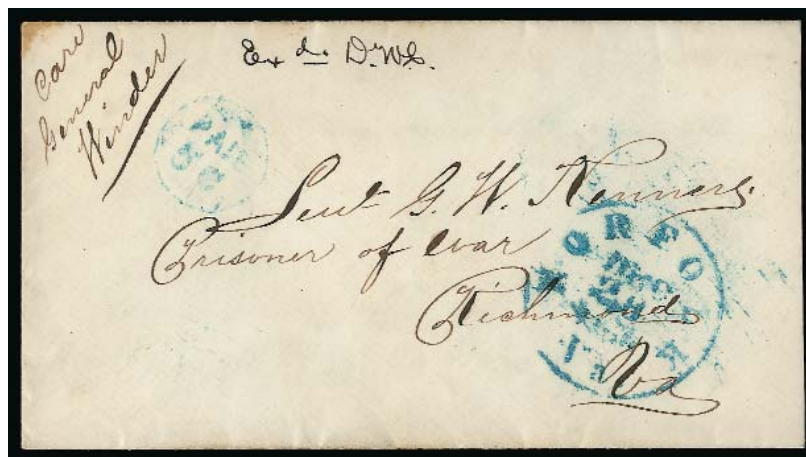 Care
General
Winder
Ex d. D.W.C.
PAID
Lieut G. W. Kenners.
Prisoner of War
Richmond
Va
NORFOLK
DEC
Va.